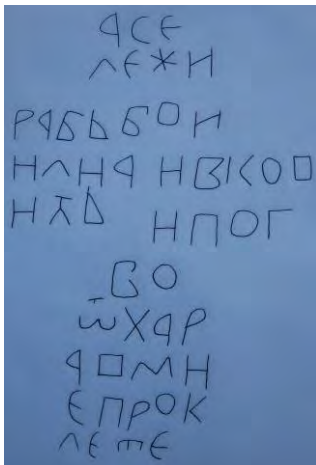 ꙗСЕ
ЛЕЖИ
РАБЬ БОИ
НЛНА НВКОО
НѪД НПОГ
ВО
ѿХАР
АОМН
ЕПРОК
ЛЕТЕ